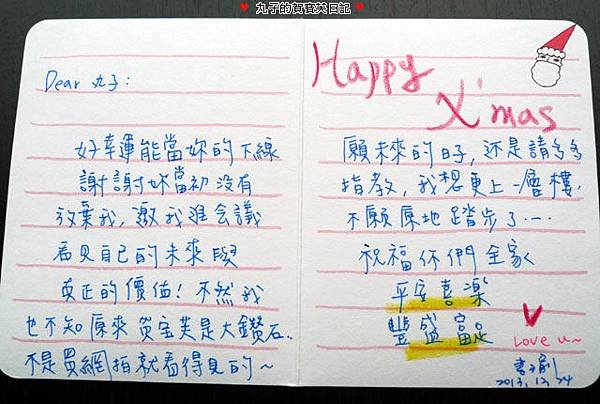 ♥ 丸子的賀寶芙日記 ♥
Dear 丸子:
好幸運能當妳的下線
謝謝妳當初沒有
放棄我, 邀我進會議
看見自己的未來與
真正的價值! 不然我
也不知原來賀寶芙是大鑽石..
不是買網拍就看得見的~
Happy
X'mas
願未來的日子, 还是請多多
指教, 我想更上一層樓,
不願原地踏步了....
祝福你們全家
平安喜樂
豐盛富足
Love u~
2013, 12, 24